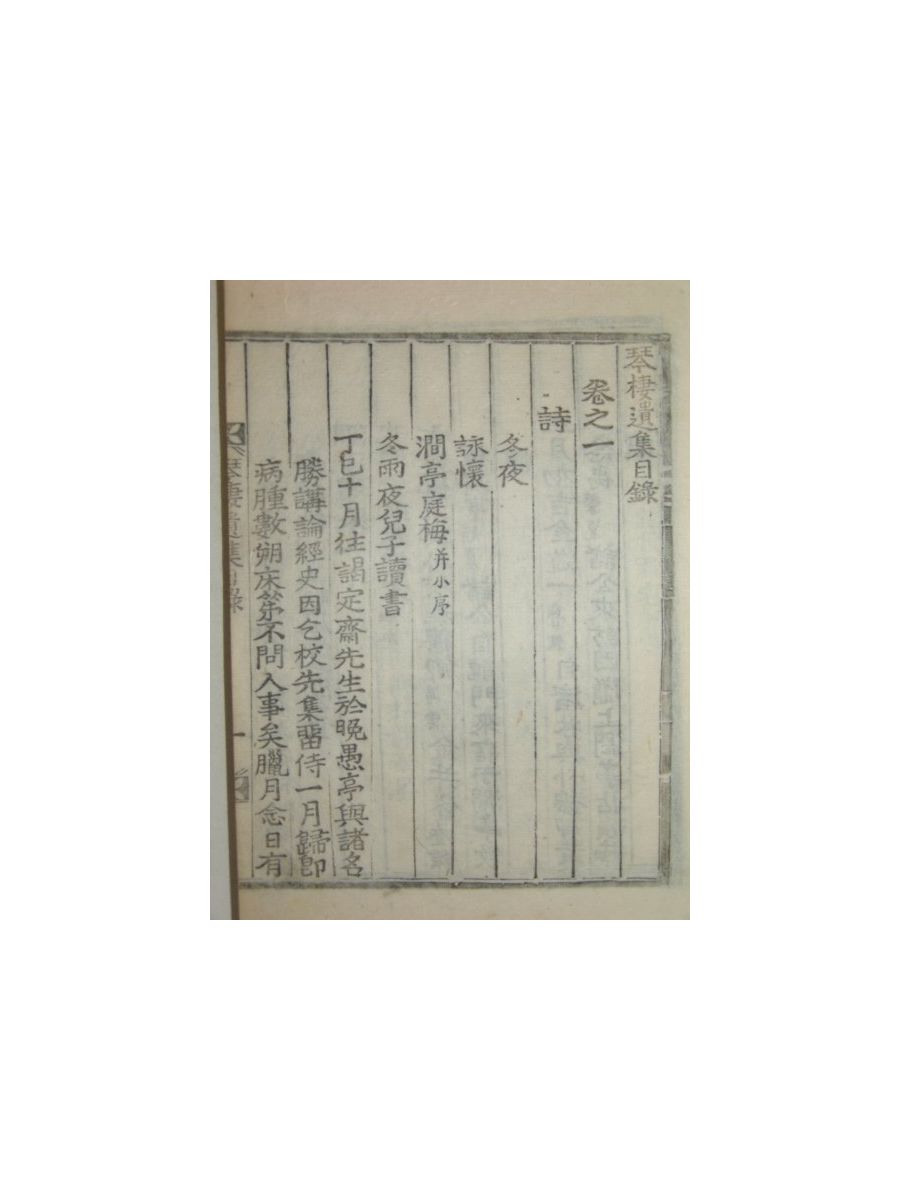 琴棲遺集目錄
卷之一
詩
冬夜
詠懷
澗亭庭梅并小序
冬雨夜兒子讀書
丁巳十月往謁定齋先生於晩愚亭與諸名
勝講論經史因乞校先集留侍一月歸卽
病腫數朔床笫不問人事矣臘月念日有
琴棲遺集目錄 一